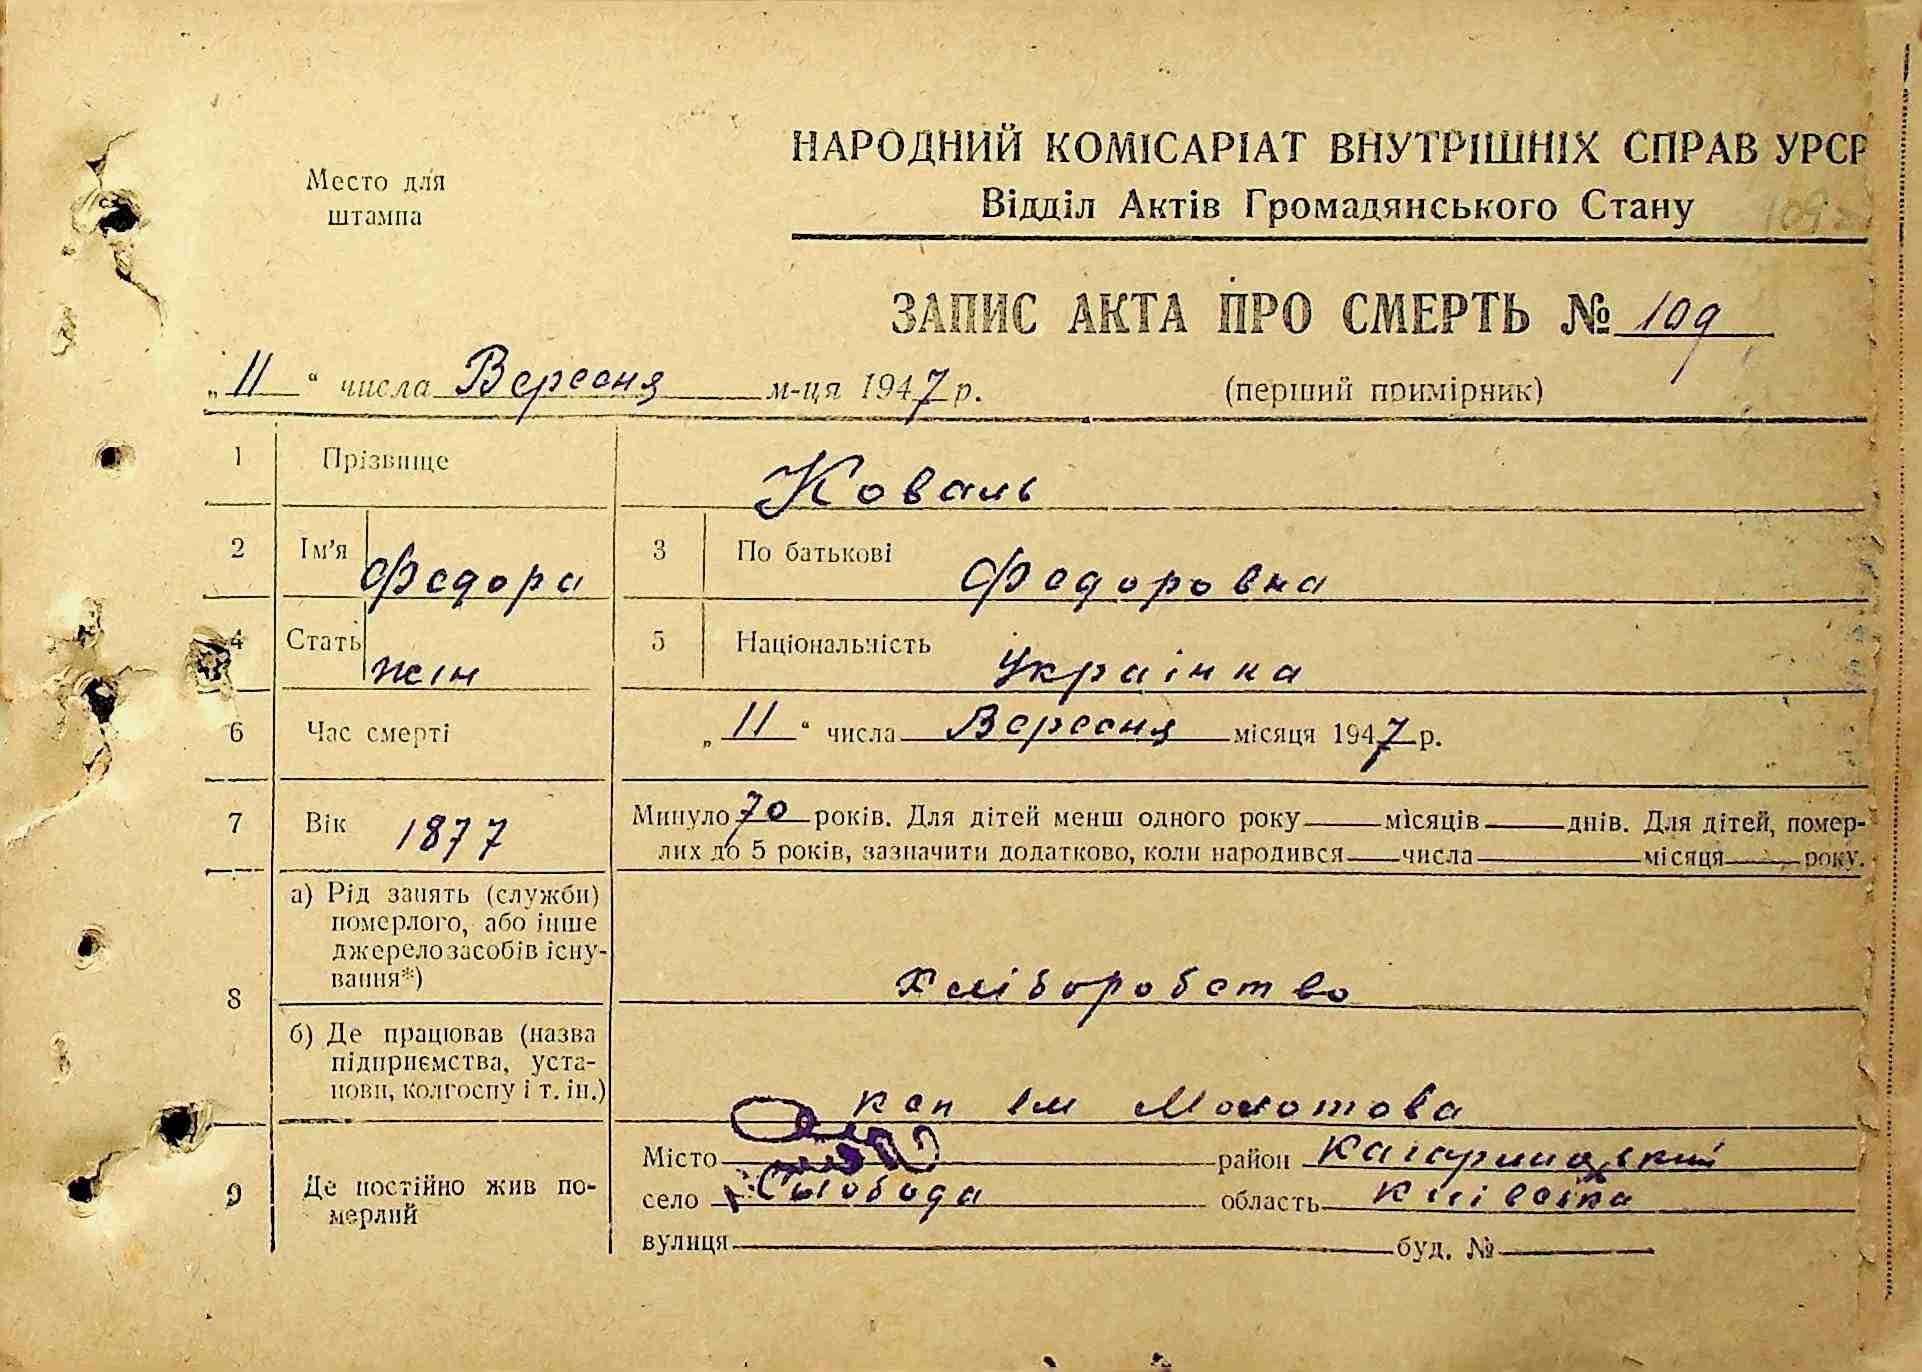 НАРОДНИЙ КОМІСАРІАТ ВНУТРІШНІХ СПРАВ УРСР
Место для штампа
Відділ Актів Громадянського Стану
ЗАПИС АКТА ПРО СМЕРТЬ № 109
„11“ числа Вересня м-ця 1947 р. (перший примірник)
1 Прізвище Коваль
2 Ім'я Федора 3 По батькові Федоровна
4 Стать жін 5 Національність Українка
6 Час смерті „11“ числа Вересня місяця 1947 р.
7 Вік 1877 Минуло 70 років. Для дітей менш одного року місяців днів. Для дітей, помер-
лих до 5 років, зазначити додатково, коли народився числа місяця року.
8 а) Рід занять (служби)
померлого, або інше
джерело засобів існу-
вання*) Хліборобство
б) Де працював (назва
підприємства, уста-
нови, колгоспу і т. ін.) ксп ім Молотова
9 Де постійно жив по-
мерлий
Місто район Кагарлицький
село Слобода область Київська
вулиця буд. №